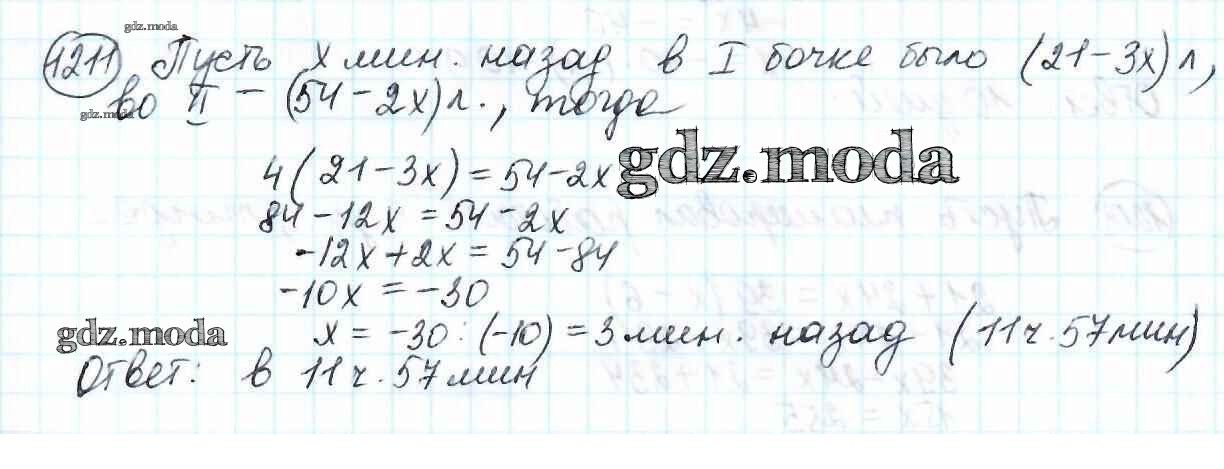 gdz.moda
1211 Пусть x мин. назад в I бочке было (21-3x) л,
gdz.moda во II - (54-2x) л., тогда
4(21-3x)=54-2x gdz.moda
84-12x=54-2x
-12x+2x=54-84
-10x=-30
gdz.moda x=-30:(-10)=3 мин. назад (11ч.57мин)
Ответ: в 11ч.57мин